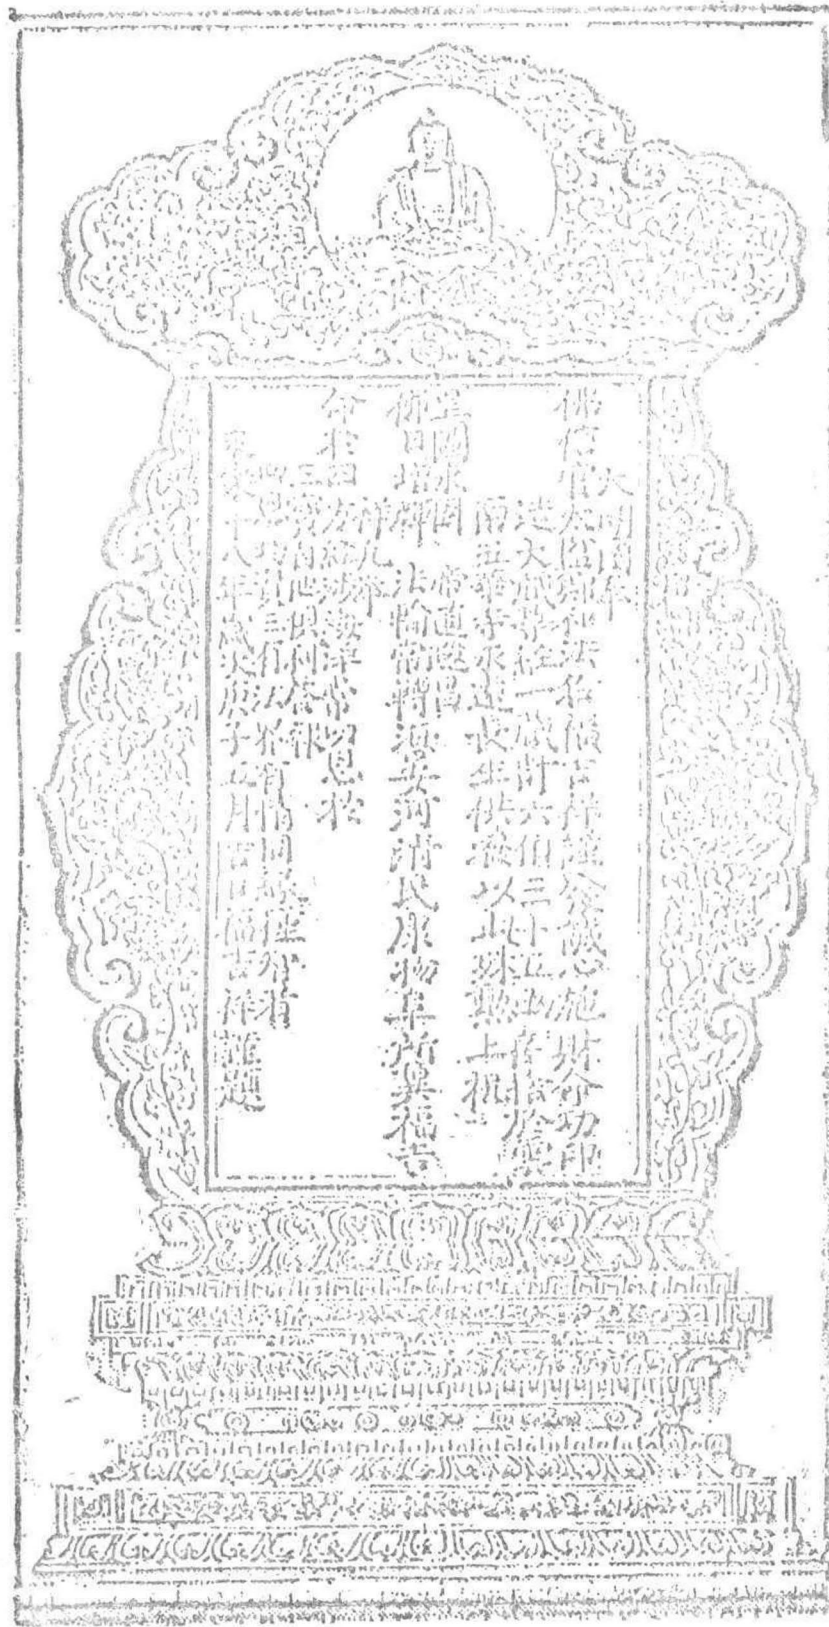 大明國奉
佛信官太監鄭和法名福吉祥謹發誠心施財命功印
造大藏尊經一藏計六伯三十五函喜捨於雲
南五華寺永遠長生供養以此殊勳上祝
皇圖永固 帝道遐昌
佛日增輝 法輪常轉海晏河清民康物阜所冀福吉
祥凡奉
命於四方經涉海洋常叨恩於
三寶自他俱利答報
四恩均資三有法界有情同緣種智者
永樂十八年歲次庚子五月吉日福吉祥謹題